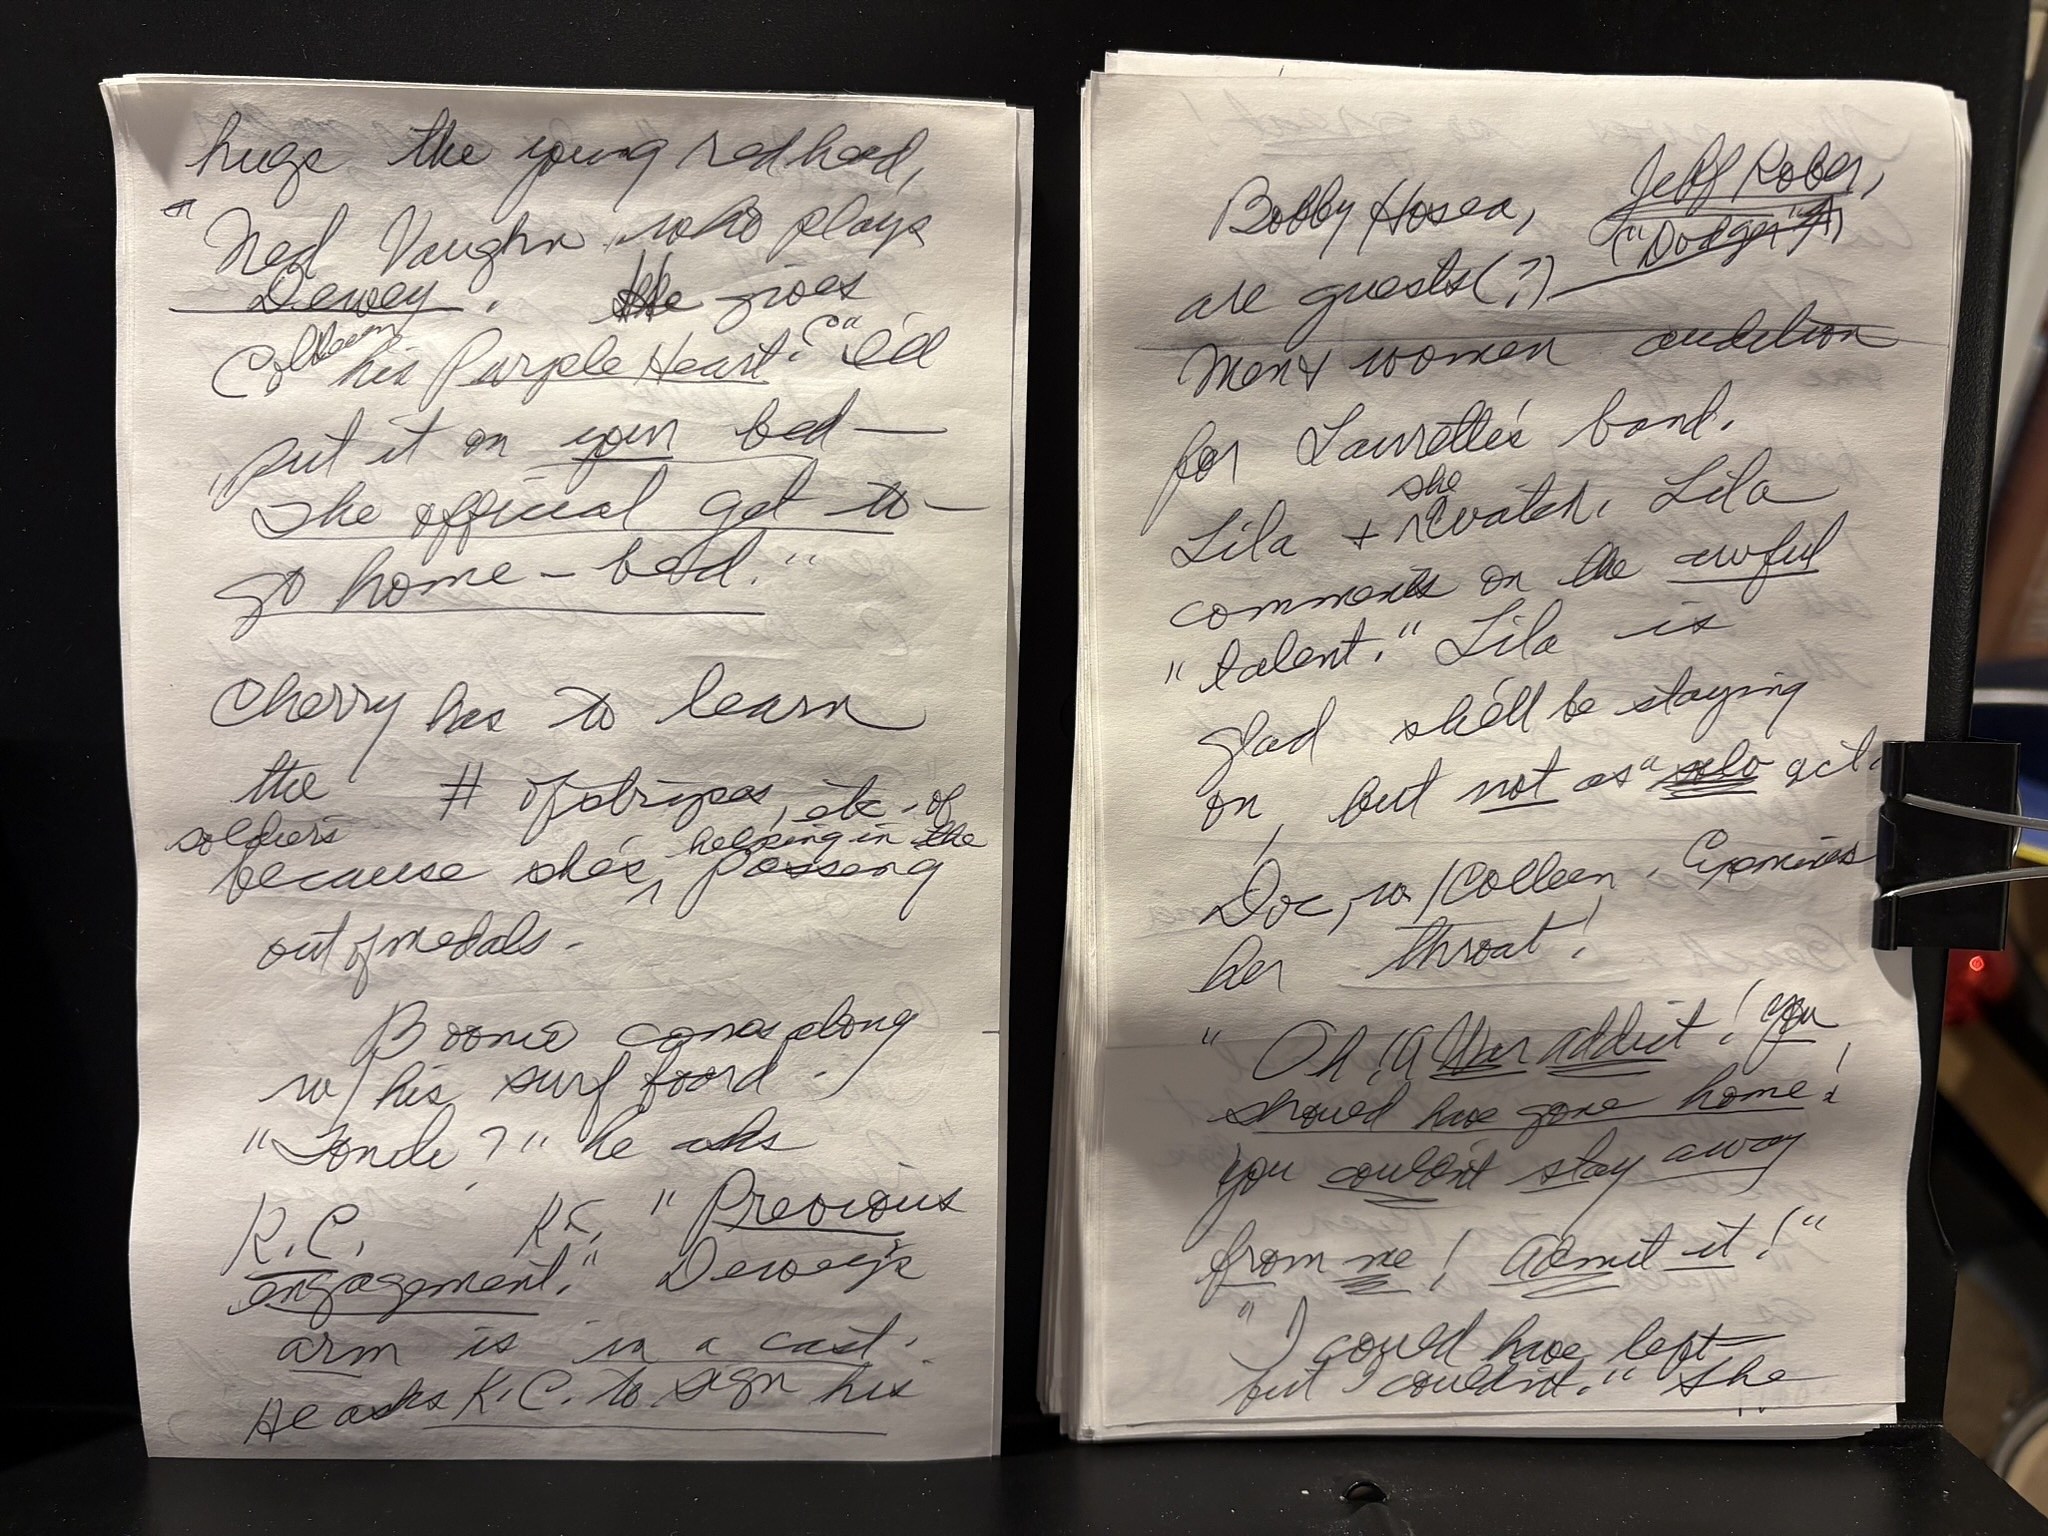 hugs the young redhead,
"Ned Vaughn, who plays
Dewey. He gives
Colleen his Purple Heart. "I'll
"put it on your bed —
The official get to —
go home — bed."
Cherry has to learn
the # of stripes, etc. of
soldiers
because she's helping in the passing
out of medals.
Boonie comes along
w/ his surf board.
" ?" he asks
K.C. KC, "Previous
engagement." Dewey's
arm is in a cast.
He asks K.C. to sign his
Bobby Hosea, Jeff Kober,
("Dodger")
are guests(?)
Men + women audition
for Laurette's band.
Lila + she watch. Lila
comments on the awful
"talent." Lila is
glad she'll be staying
on, but not as a solo act.
Doc, w/ Colleen, examines
her throat!
"Oh! A War addict! You
should have gone home!
You couldn't stay away
from me! Admit it!"
"I could have left —
but I couldn't." She